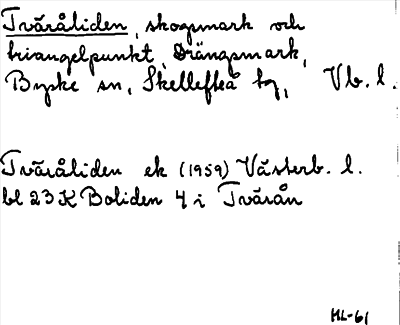 Tväråliden, skogsmark och
triangelpunkt, Drängsmark,
Byske sn, Skellefteå kg, Vb. l.
Tväråliden ek (1959) Västerb. l.
bl 23 K Boliden 4 i Tvärån
HL-61